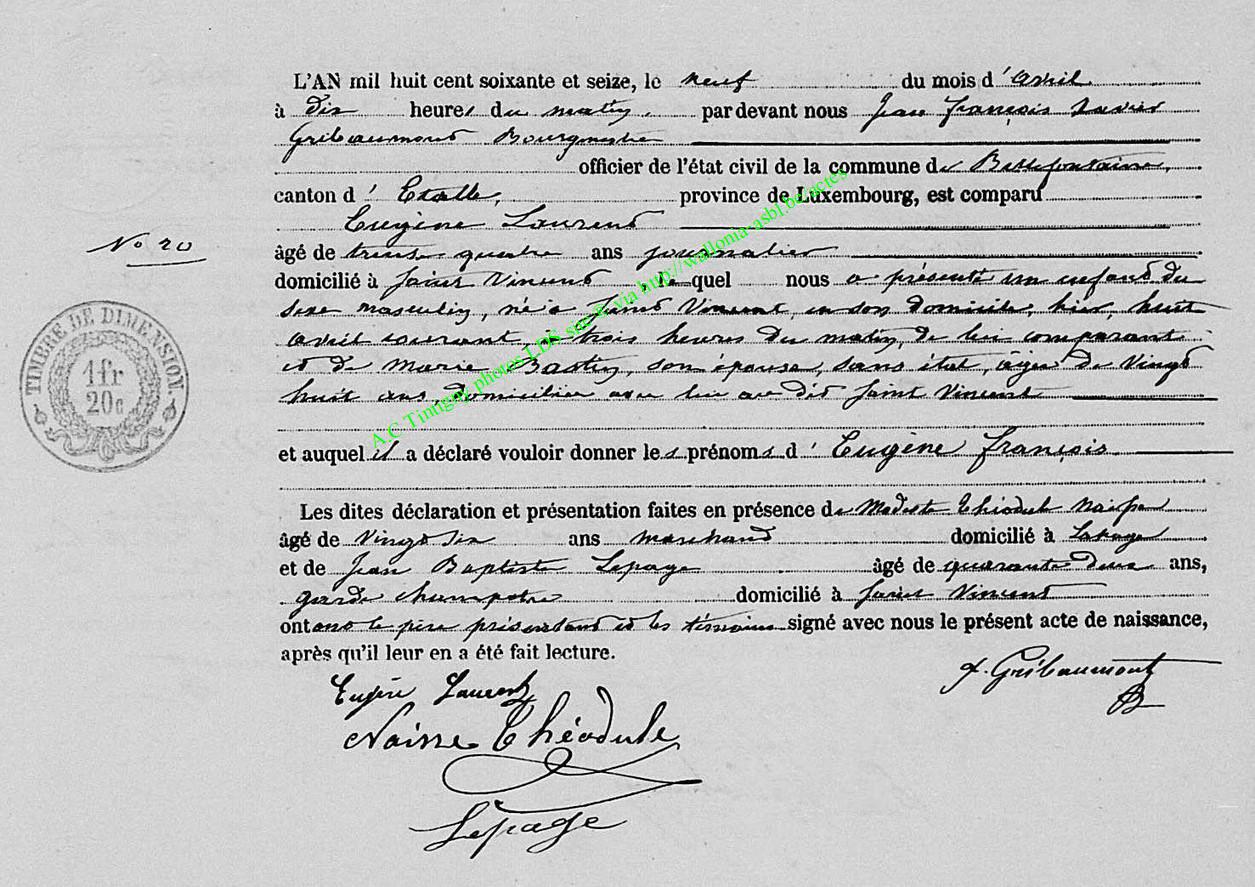 L'AN mil huit cent soixante et seize, le neuf du mois d' avril
à dix heures du matin, par devant nous Jean françois Xavier
Gribaumont Bourgmestre
officier de l'état civil de la commune de Bellefontaine,
canton d' Etalle, province de Luxembourg, est comparu
Eugène Laurent
No 20
âgé de trente quatre ans journalier
domicilié à Saint Vincent, lequel nous a présenté un enfant du
sexe masculin, né à Saint Vincent, en son domicile, hier, huit
avril courant, à trois heures du matin, de lui comparant
et de Marie Bastin, son épouse, sans état, âgée de Vingt
huit ans, domiciliée avec lui au dit Saint Vincent
et auquel il a déclaré vouloir donner les prénoms d' Eugène françois
Les dites déclaration et présentation faites en présence de Modeste Théodule
âgé de Vingt six ans marchand domicilié à
et de Jean Baptiste Lepage âgé de quarante deux ans,
garde champêtre domicilié à Saint Vincent
ont le père présentant et les témoins signé avec nous le présent acte de naissance,
après qu'il leur en a été fait lecture.
Eugène Laurent
X. Gribaumont
Théodule
Lepage
TIMBRE DE DIMENSION.
1fr
20c
A.C Tintigny photos LDS sur et via http//wallonia-asbl.be.actes